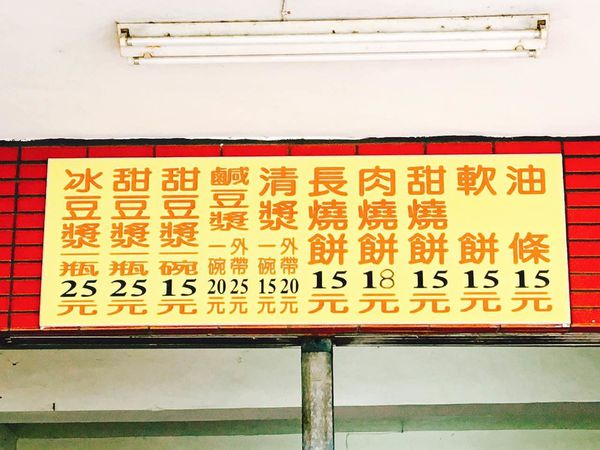 油條15元
軟餅15元
甜燒餅15元
肉燒餅18元
長燒餅15元
清漿 外帶20元 一碗15元
鹹豆漿 外帶25元 一碗20元
甜豆漿一碗15元
甜豆漿一瓶25元
冰豆漿一瓶25元